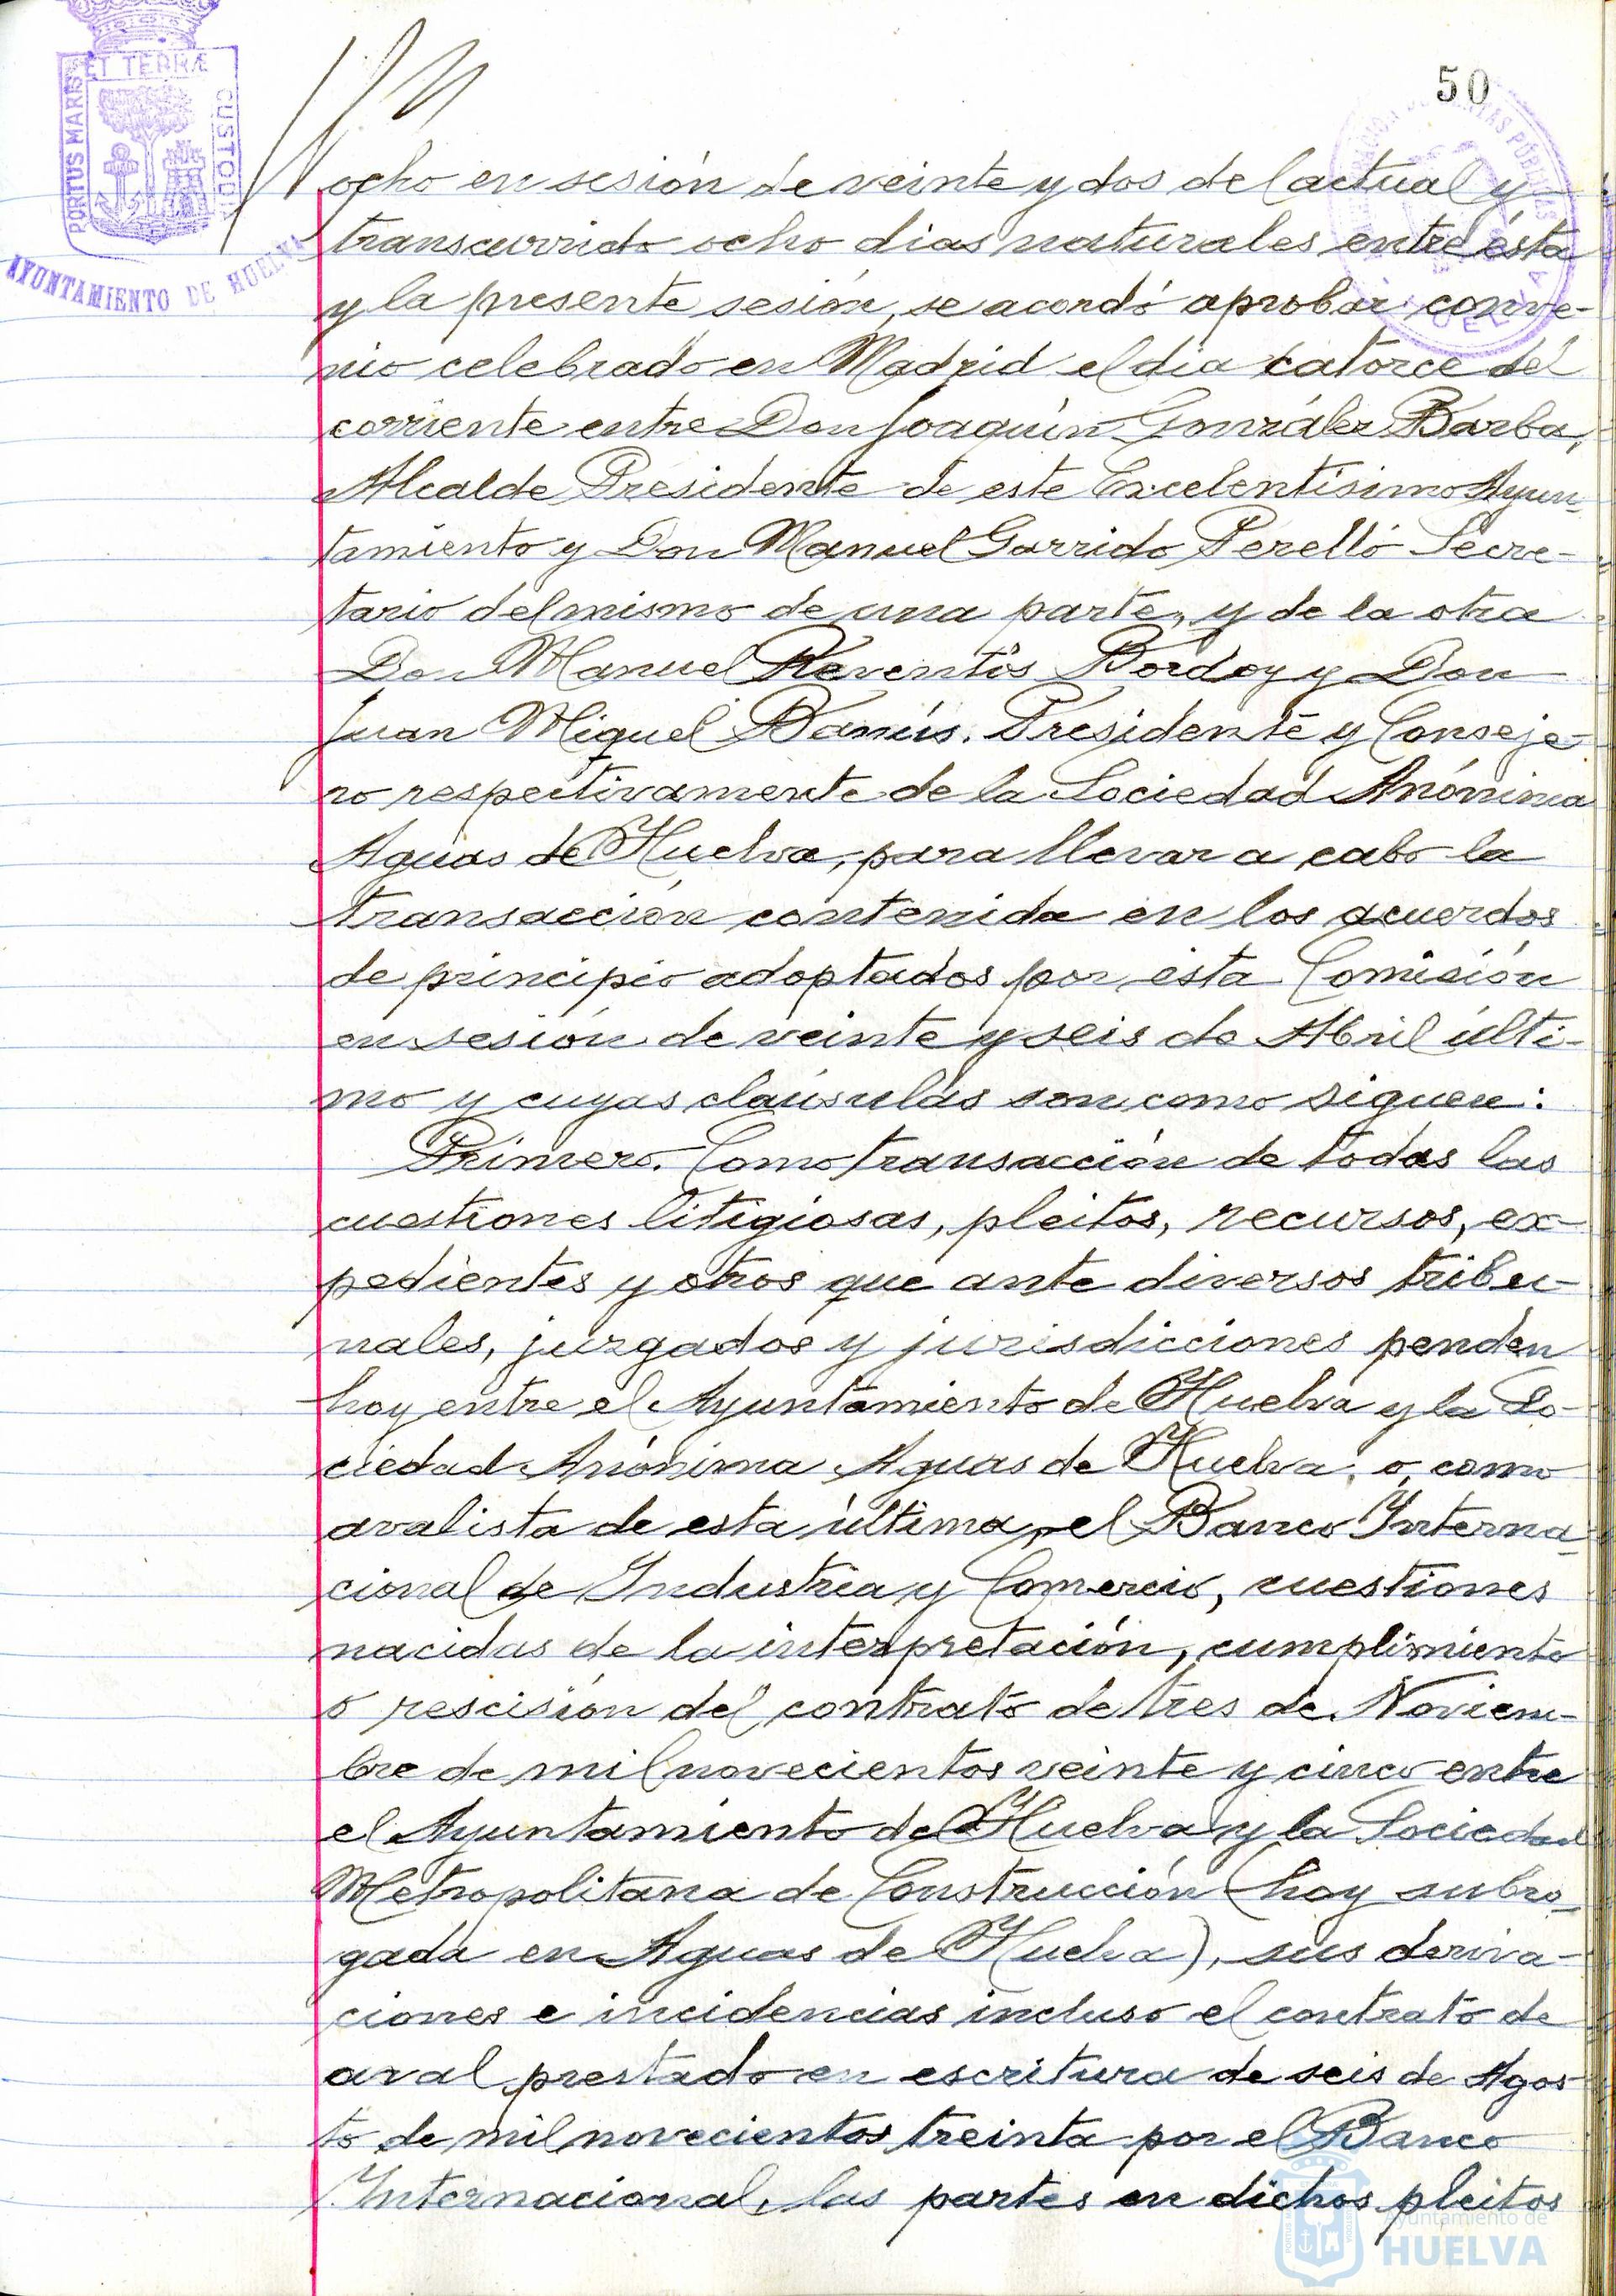 50
ET TERRÆ
PORTUS MARIS
CUSTODIA
AYUNTAMIENTO DE HUELVA
ocho en sesión de veinte y dos del actual y
transcurrido ocho dias naturales entre ésta
y la presente sesión, se acordó aprobar conve-
nio celebrado en Madrid el dia catorce del
corriente entre Don Joaquín González Barba,
Alcalde Presidente de este Excelentísimo Ayun-
tamiento y Don Manuel Garrido Perelló Secre-
tario del mismo de una parte, y de la otra
Don Manuel Reventós Bordoy y Don
Juan Miguel Banús. Presidente y Conseje-
ro respectivamente de la Sociedad Anónima
Aguas de Huelva, para llevar a cabo la
transacción contenida en los acuerdos
de principio adoptados por esta Comisión
en sesión de veinte y seis de Abril últi-
mo y cuyas claúsulas son como siguen:
Primero. Como transacción de todas las
cuestiones litigiosas, pleitos, recursos, ex-
pedientes y otros que ante diversos tribu-
nales, juzgados y jurisdicciones penden
hoy entre el Ayuntamiento de Huelva y la So-
ciedad Anónima Aguas de Huelva, o como
avalista de esta última, el Banco Interna-
cional de Industria y Comercio, cuestiones
nacidas de la interpretación, cumplimiento
o rescisión del contrato de tres de Noviem-
bre de mil novecientos veinte y cinco entre
el Ayuntamiento de Huelva y la Sociedad
Metropolitana de Construcción (hoy subro-
gada en Aguas de Huelva), sus deriva-
ciones e incidencias incluso el contrato de
aval prestado en escritura de seis de Agos-
to de mil novecientos treinta por el Banco
Internacional, las partes en dichos pleitos
Ayuntamiento de
HUELVA